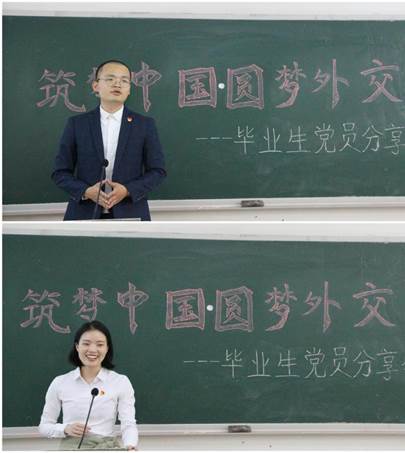 筑梦中国·圆梦外交
---毕业生党员分享
筑梦中国·圆梦外交
---毕业生党员分享